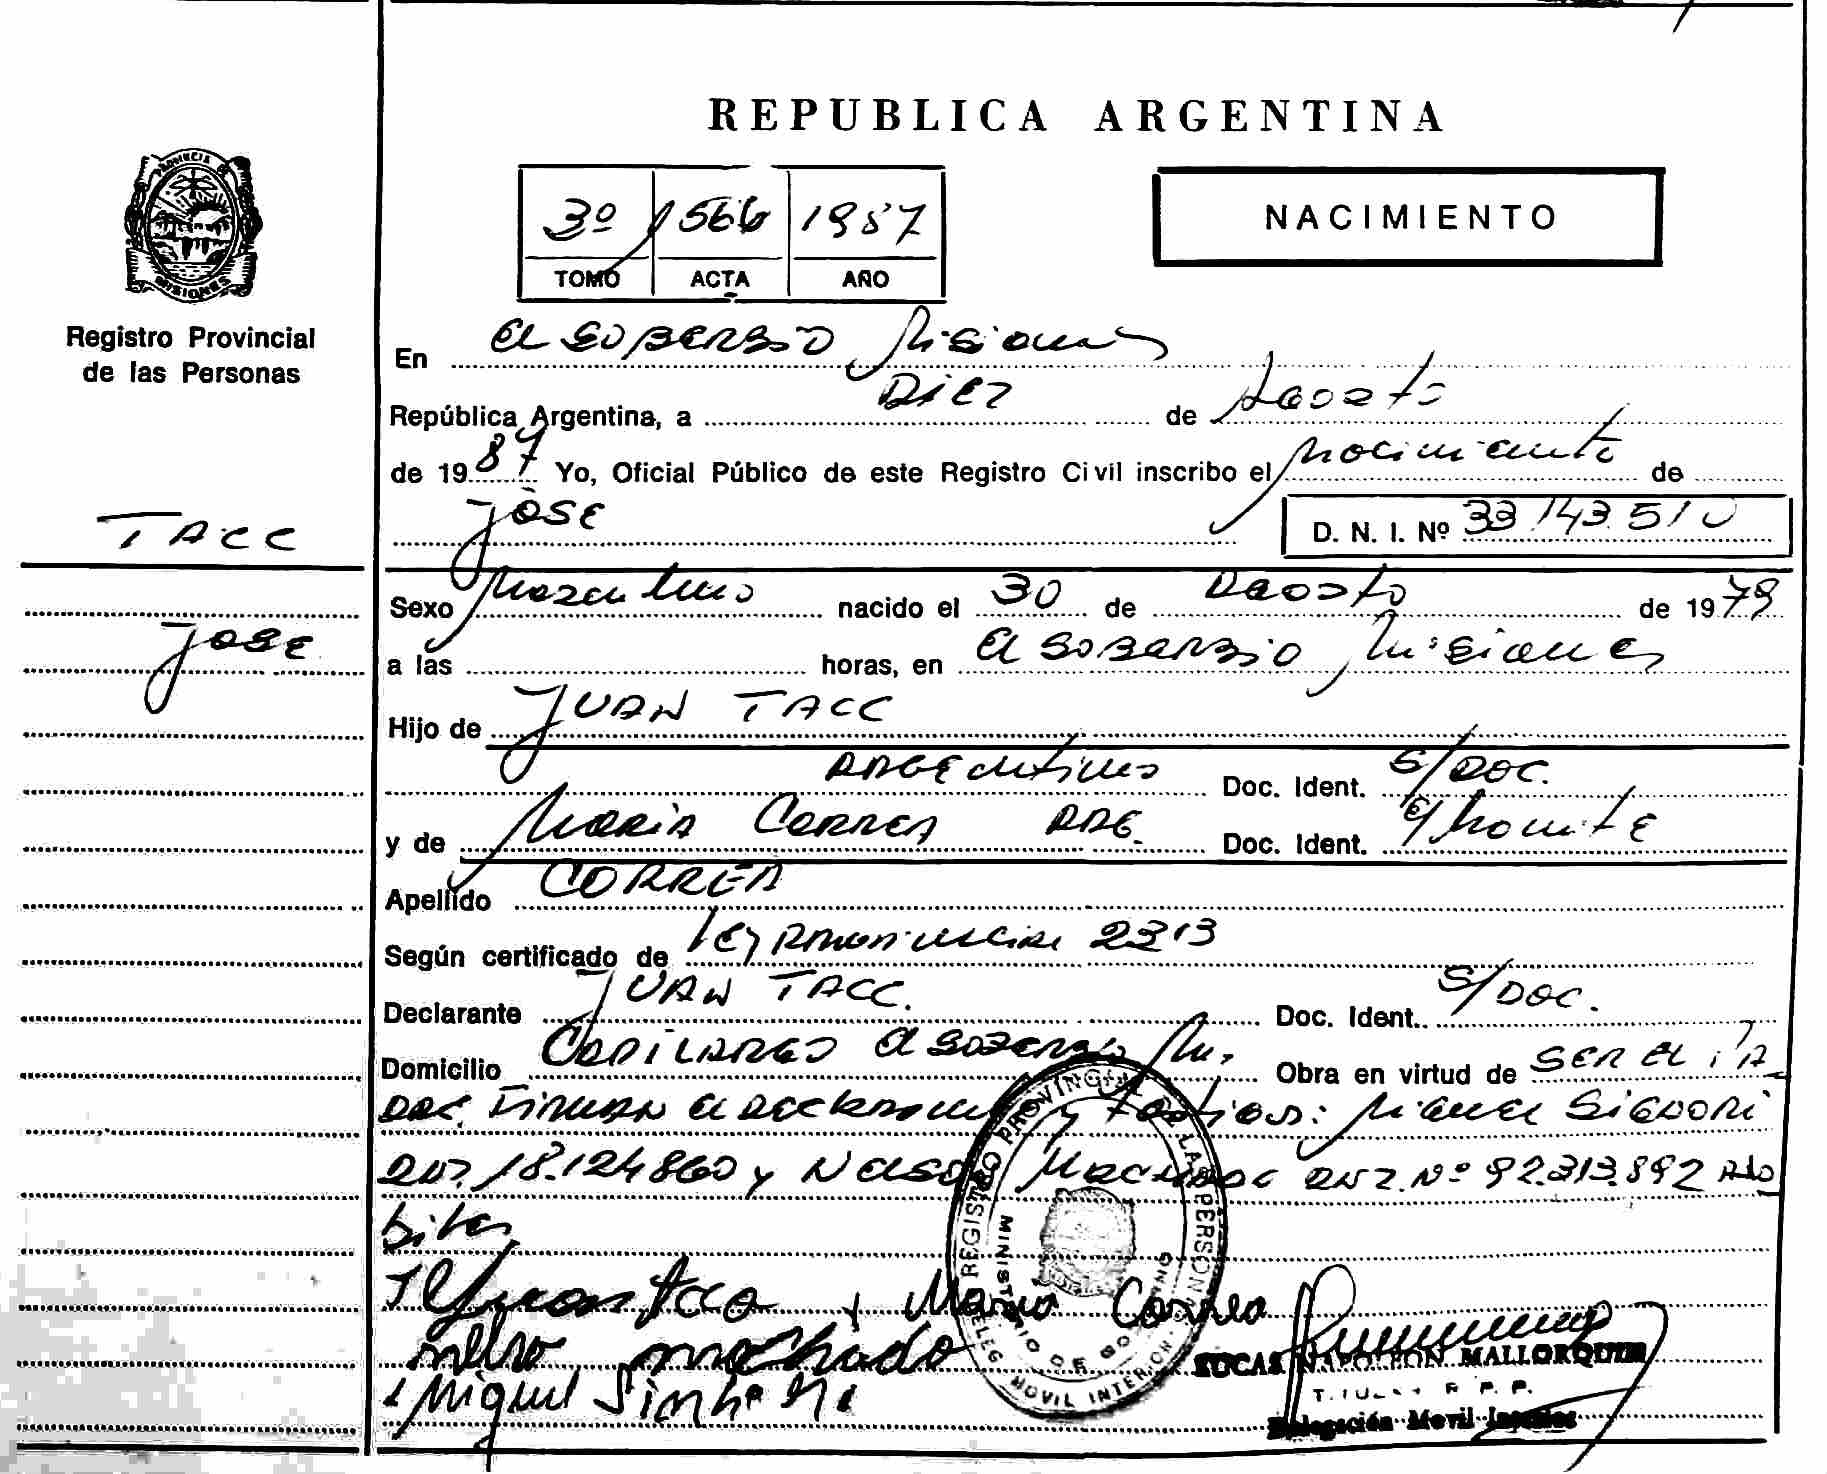 REPUBLICA ARGENTINA
PROVINCIA DE MISIONES
Registro Provincial
de las Personas
3º 566 1987
TOMO ACTA AÑO
NACIMIENTO
En El SOBERBIO Misiones
República Argentina, a DIEZ de Agosto
de 1987 Yo, Oficial Público de este Registro Civil inscribo el nacimiento de
JOSE D. N. I. Nº 33.143.510
TACC
JOSE
Sexo masculino nacido el 30 de Agosto de 1979
a las horas, en El SOBERBIO Misiones
Hijo de JUAN TACC
ARGENTINO Doc. Ident. S/DOC.
y de MARIA CORREA ARG. Doc. Ident.
Apellido CORREA
Según certificado de Ley 2313
Declarante JUAN TACC. Doc. Ident. S/DOC.
Domicilio El SOBERBIO Mis. Obra en virtud de SER EL PA
DRE. FIRMAN El DECLARANTE y Testigos: Miguel
18.124.860 y Nelso DNI. Nº 92.313.892
Juan Maria Correa
machado
Miguel
REGISTRO PROVINCIAL DE LAS PERSONAS
MINISTERIO DE GOBIERNO
DELEG. MOVIL INTERIOR
LUCAS NAPOLEON MALLORQUIN
TITULAR R. P. P.
Delegación Movil Interior